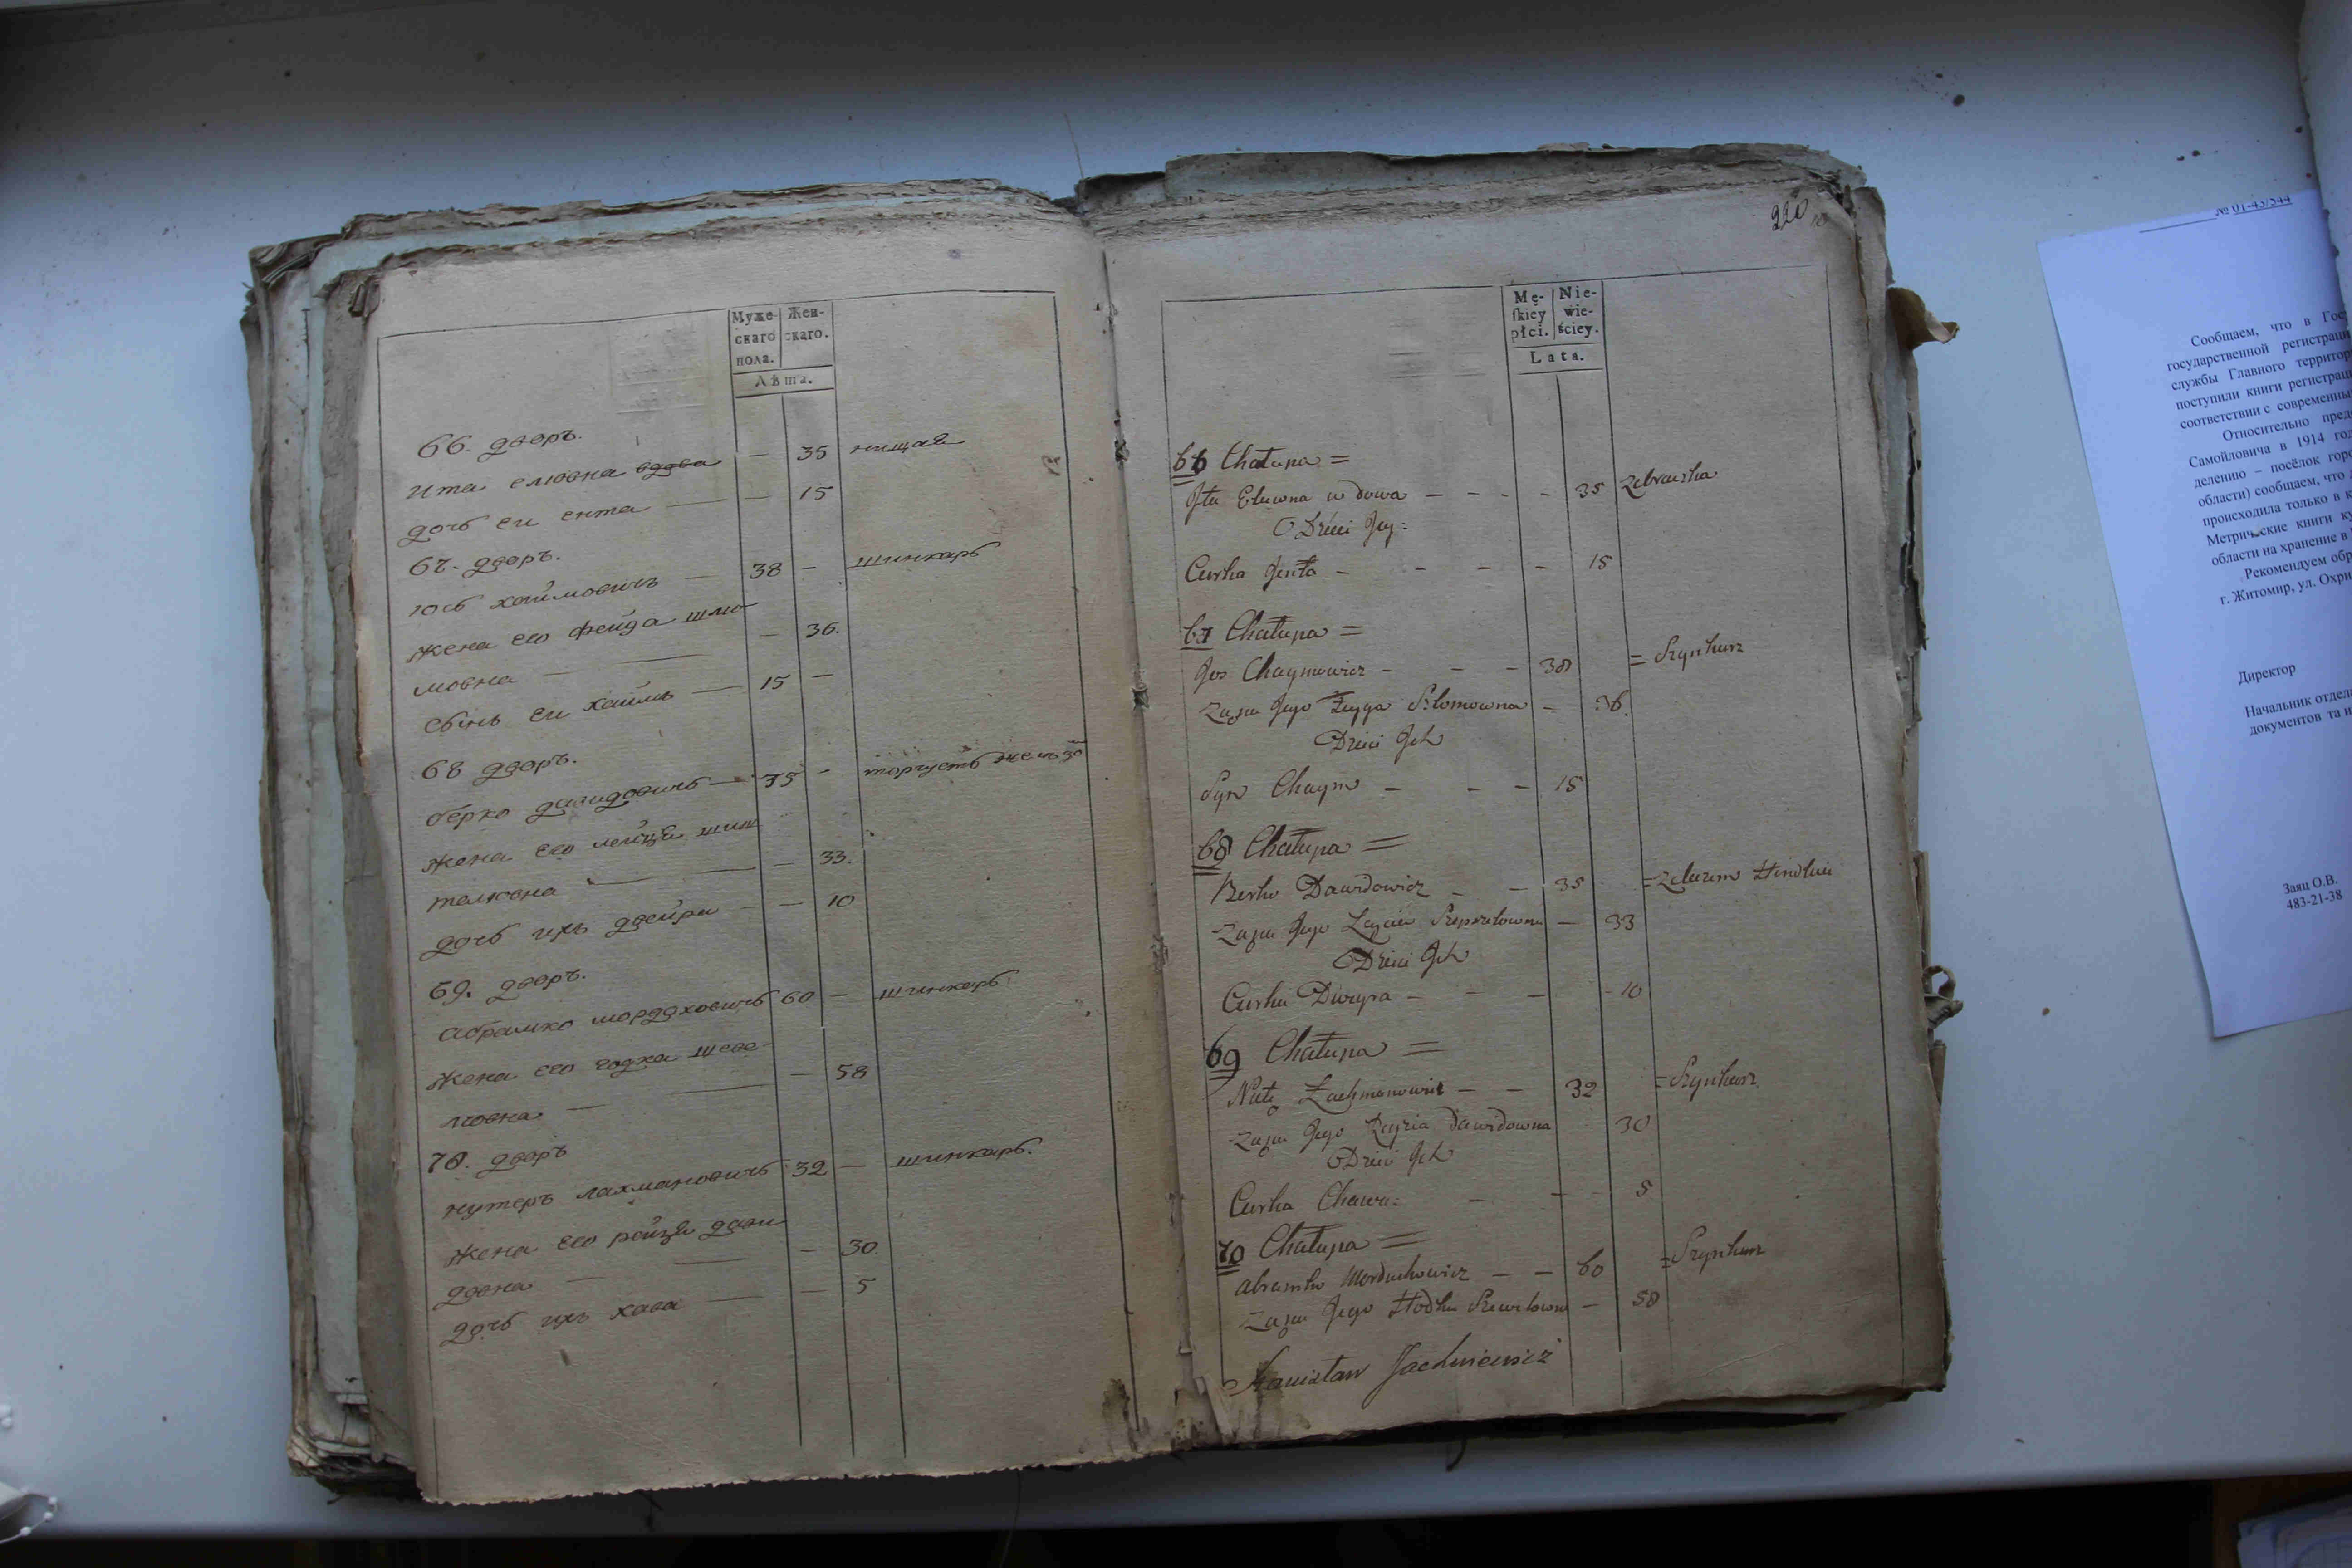 Муже-
скаго
пола.
Жен-
скаго.
Лѣта.
66. дворъ.
Ита елювна вдова — 35 нищая
дочь ей ента — — 15
67. дворъ.
Юсь хаимовичъ — 38 — шинкарь
жена его фейда шлю-
мовна — — — 36.
сынъ ей хаимъ — 15 —
68 дворъ.
берко давидовичь — 35 — торгуетъ
жена его лейця шим
телювна — — — 33.
дочь ихъ двейра — — 10
69. дворъ.
абрамко мордховичь 60 — шинкарь
жена его годка шеве-
лювна — — — 58
70. дворъ
нутеръ лахмановичь 32 — шинкарь.
жена его рейзя дави
довна — — — 30
дочь ихъ хава — — 5
220
Mę-
skiey
płci.
Nie-
wie-
ściey.
Lata.
66 Chałupa =
Jta Eluwna wdowa - - - - 35 Zebraczka
Dzieci Jey =
Curka Jenta - - - - 15
67 Chałupa =
Jos Chaymowicz - - - 38 = Szynkarz
Zana Jego Szlomowna - 36.
Dzieci Jch
Syn Chaym - - - 15
68 Chałupa =
Berko Dawidowicz - - 35 = Zelazem Handluie
Zana Jego Laycia - 33
Dzieci Jch
Curka Dwayra - - - - 10
69 Chałupa =
Nute Lachmanowicz - - 32 = Szynkarz
Zana Jego Rayzia Dawidowna 30
Dzieci Jch
Curka Chawa = - - - 5
70 Chałupa =
Abramko Morduchowicz - - 60 = Szynkarz
Zana Jego Hodka Szewelowna - 58
Stanisław Jachniewicz
№ 01-43/544
Сообщаем, что в Гос
государственной регистраци
службы Главного территор
поступили книги регистрац
соответствии с современны
Относительно пред
Самойловича в 1914 го
делению – посёлок горо
области) сообщаем, что
происходила только в к
Метрические книги ку
области на хранение в
Рекомендуем обр
г. Житомир, ул. Охри
Директор
Начальник отдел
документов та и
Заяц О.В.
483-21-38